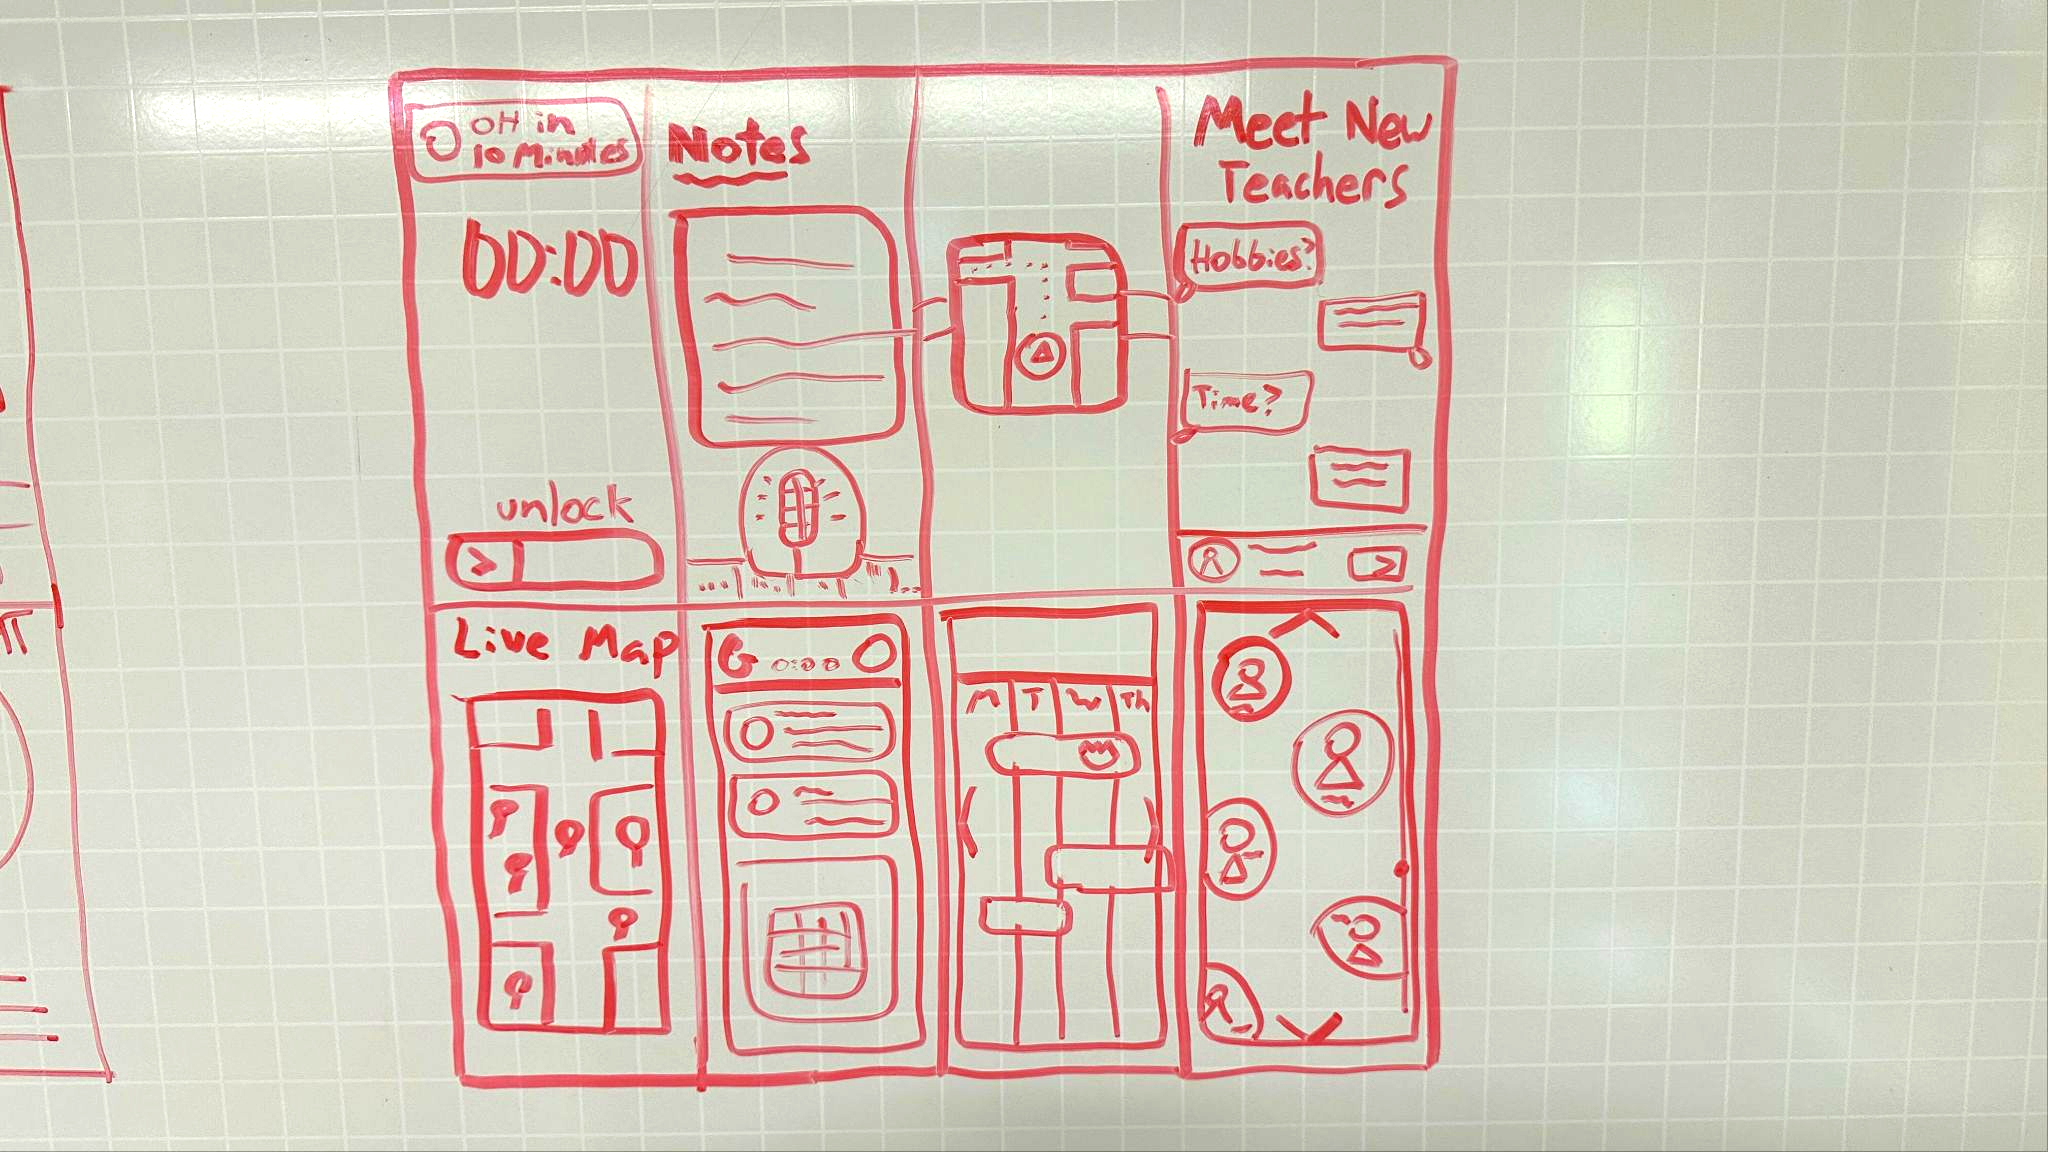 OH in
10 Minutes
00:00
unlock
Notes
Meet New
Teachers
Hobbies?
Time?
Live Map
G 0:00
M T W Th